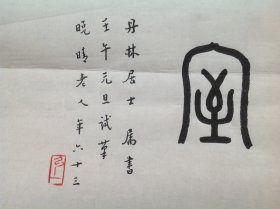 室
丹林居士屬書
壬午元旦試筆
晚晴老人年六十三